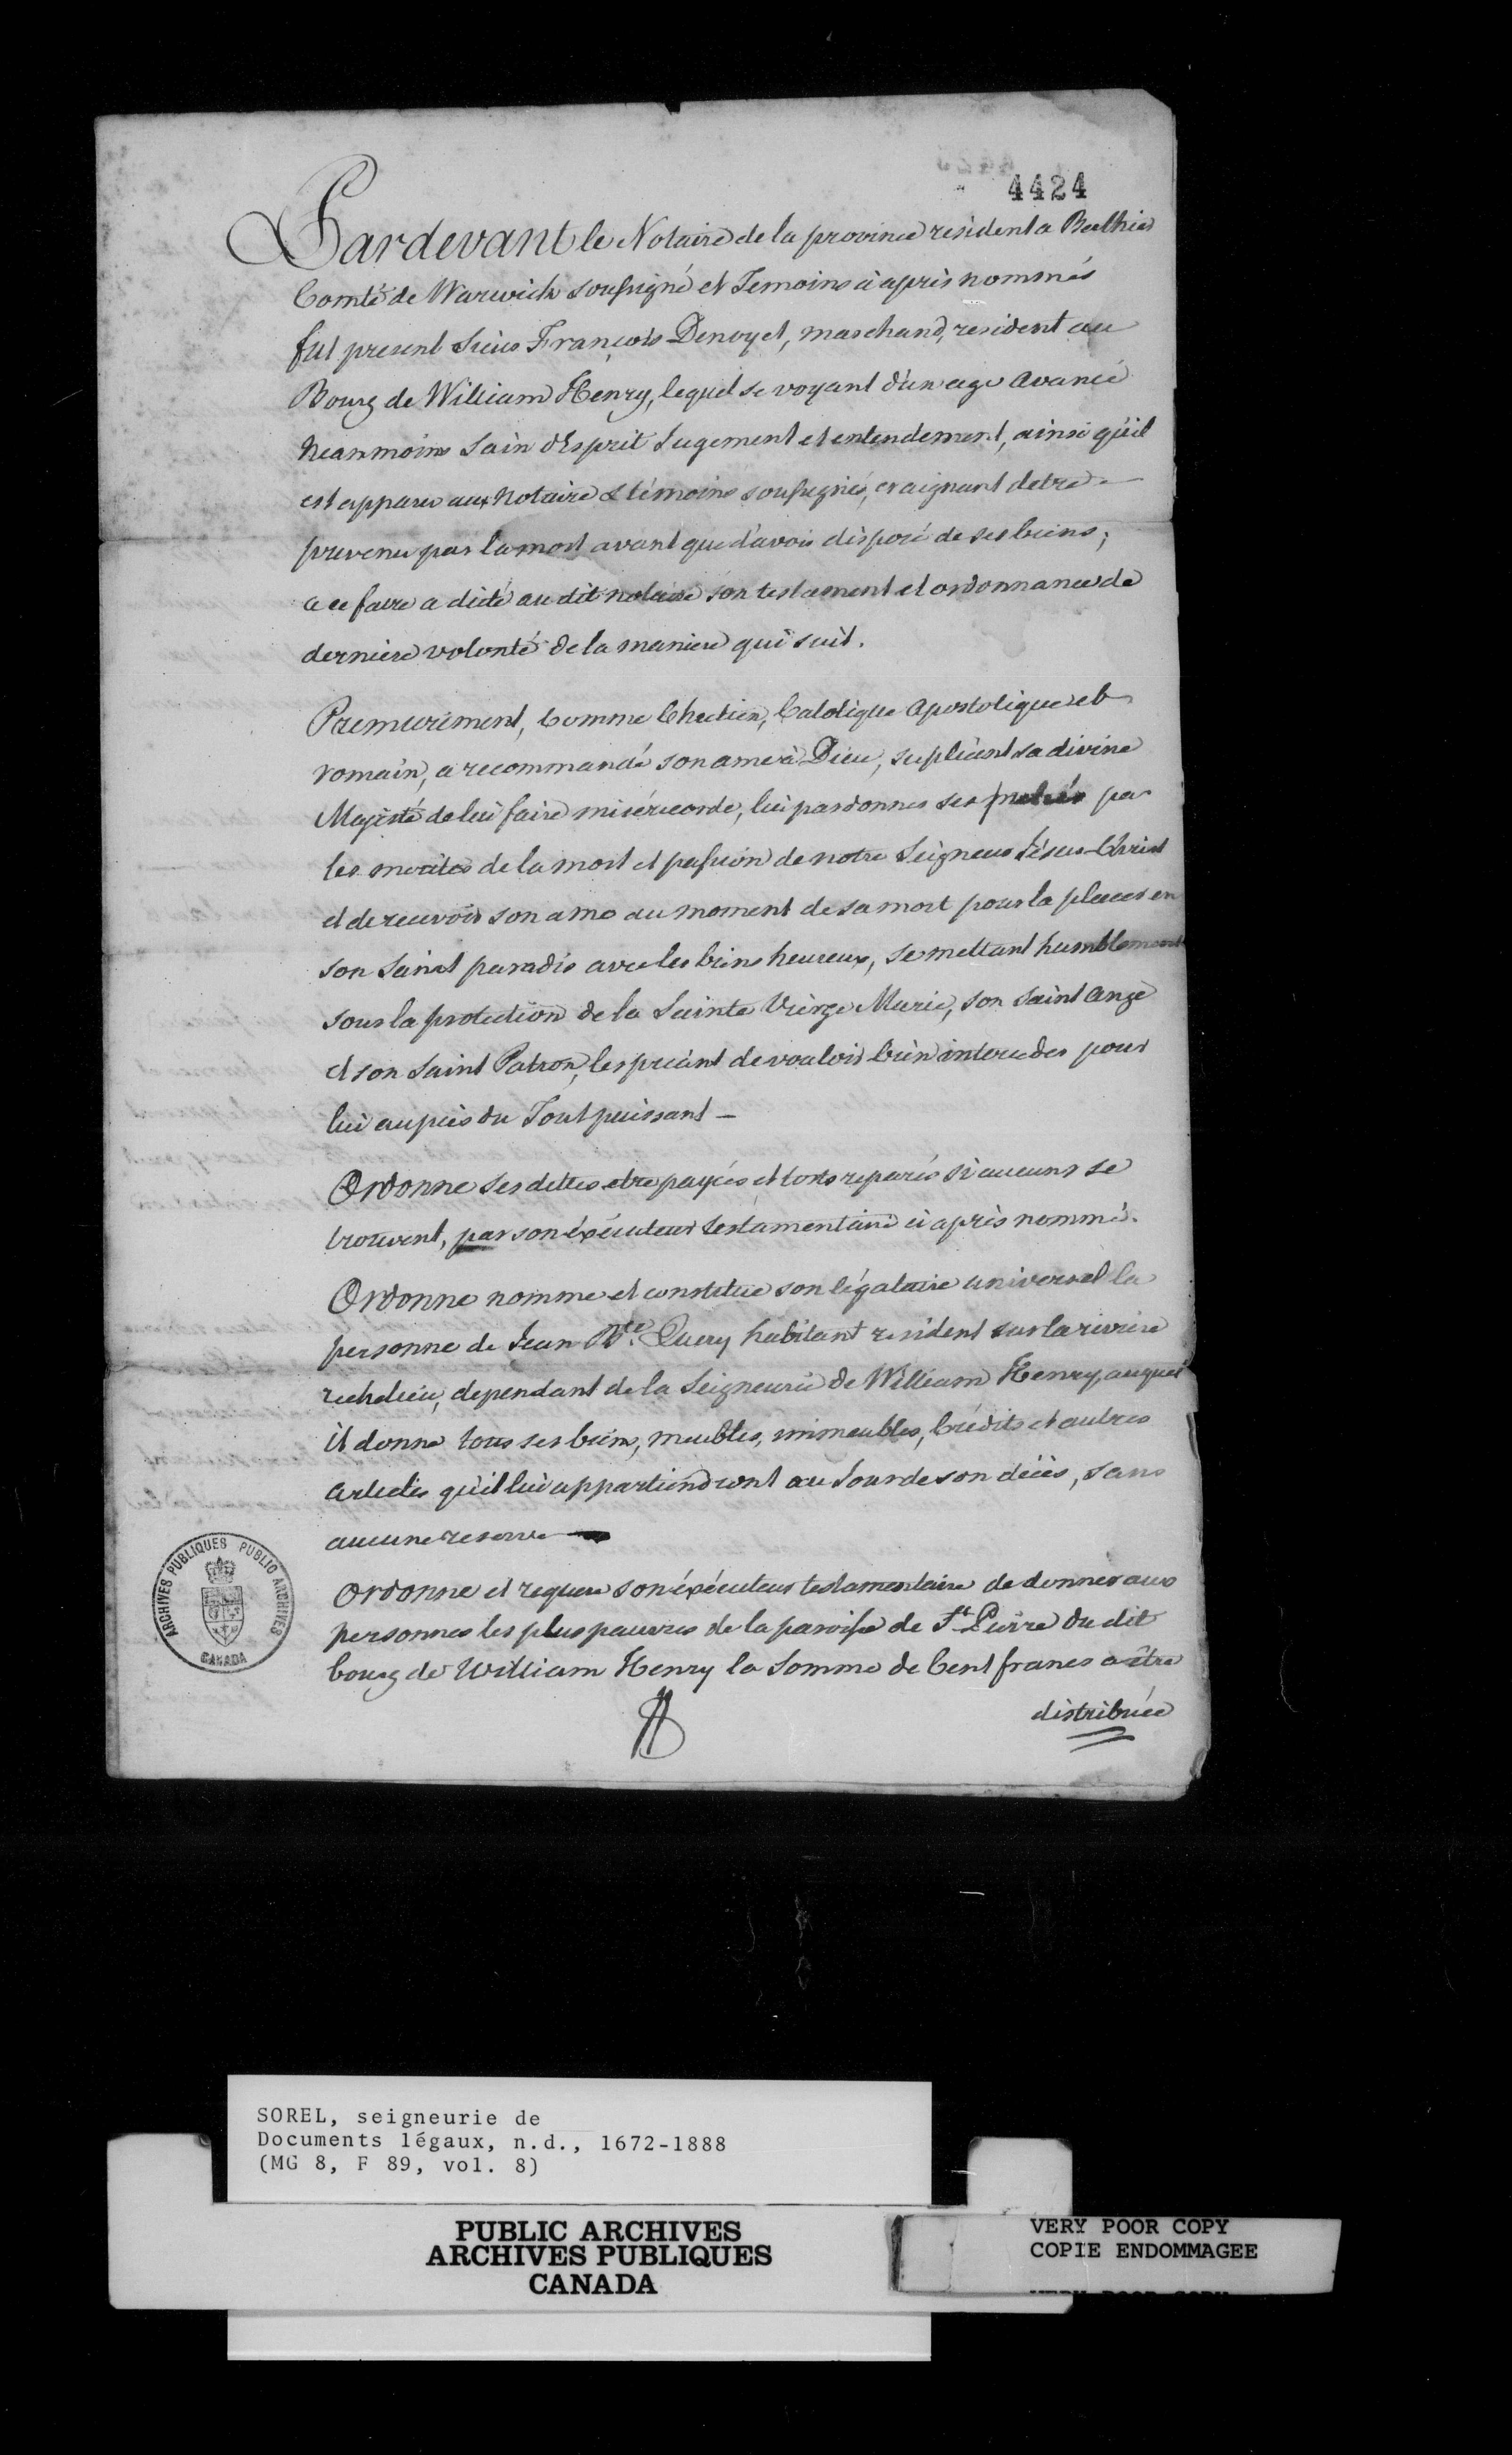 4424
Pardevant le Notaire de la province résident a Berthier
Comté de Warwick soussigné et Temoins ci après nommés
fut present Sieur François Denoyel, marchand, resident au
Bourg de William Henry, lequel se voyant d'un age avancé
neanmoins Sain d'Esprit Jugement et entendement, ainsi qu'il
est apparu aux Notaire & témoins soussignés, craignant detre
prevenu par la mort avant que d'avoir disposé de ses biens,
a ce faire a dicté au dit notaire son testament et ordonnance de
derniere volonté de la maniere qui suit.
Premierement, Comme Chretien, Catolique Apostolique et
romain, a recommandé son ame à Dieu, supliant sa divine
Majesté de lui faire miséricorde, lui pardonner ses par
les merites de la mort et passion de notre Seigneur Jésus-Christ
et de recevoir son ame au moment de sa mort pour la placer en
son Saint paradis avec les biens heureux, se mettant humblement
sous la protection de la Sainte Vierge Marie, son Saint Ange
et son Saint Patron, les priant de vouloir bien interceder pour
lui auprès du Tout puissant —
Ordonne ses dettes etre payées et torts reparés si aucuns se
trouvent, par son éxécuteur testamentaire ci après nommé.
Ordonne nomme et constitue son légataire universel la
personne de Jean Bte. Query habitant resident sur la riviere
richelieu, dependant de la Seigneurie de William Henry, auquel
il donne tous ses biens, meubles, immeubles, Crédits et autres
articles qu'il lui appartiendront au Jour de son décès, sans
aucune reserve —
Ordonne et requere son éxécuteur testamentaire de donner aux
personnes les plus pauvres de la paroisse de St Pierre du dit
bourg de William Henry la Somme de Cent francs a être
distribuée
ARCHIVES PUBLIQUES PUBLIC ARCHIVES
CANADA
SOREL, seigneurie de
Documents légaux, n.d., 1672-1888
(MG 8, F 89, vol. 8)
PUBLIC ARCHIVES
ARCHIVES PUBLIQUES
CANADA
VERY POOR COPY
COPIE ENDOMMAGEE
VERY POOR COPY